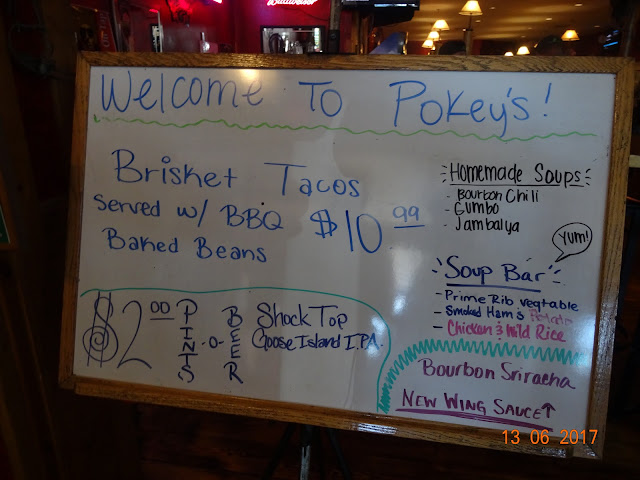 Budweiser
Welcome To Pokey's!
Brisket Tacos
Served w/ BBQ
Baked Beans
$10 99
Homemade Soups
- Bourbon Chili
- Gumbo
- Jambalya
Yum!
Soup Bar
- Prime Rib Vegtable
- Smoked Ham & Potato
- Chicken & Wild Rice
$2 00 PINTS -O- BEER
Shock Top
Goose Island I.P.A.
Bourbon Sriracha
New Wing Sauce
13 06 2017